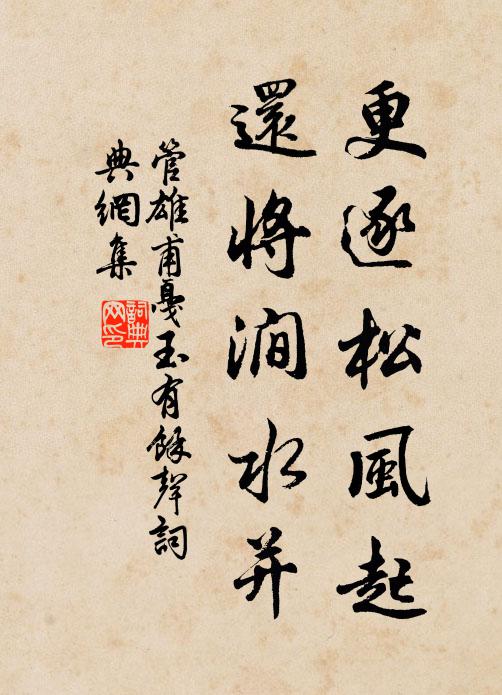 更逐松風起
還將澗水并
管雄甫戛玉有餘聲詞
典網集
詞典網印